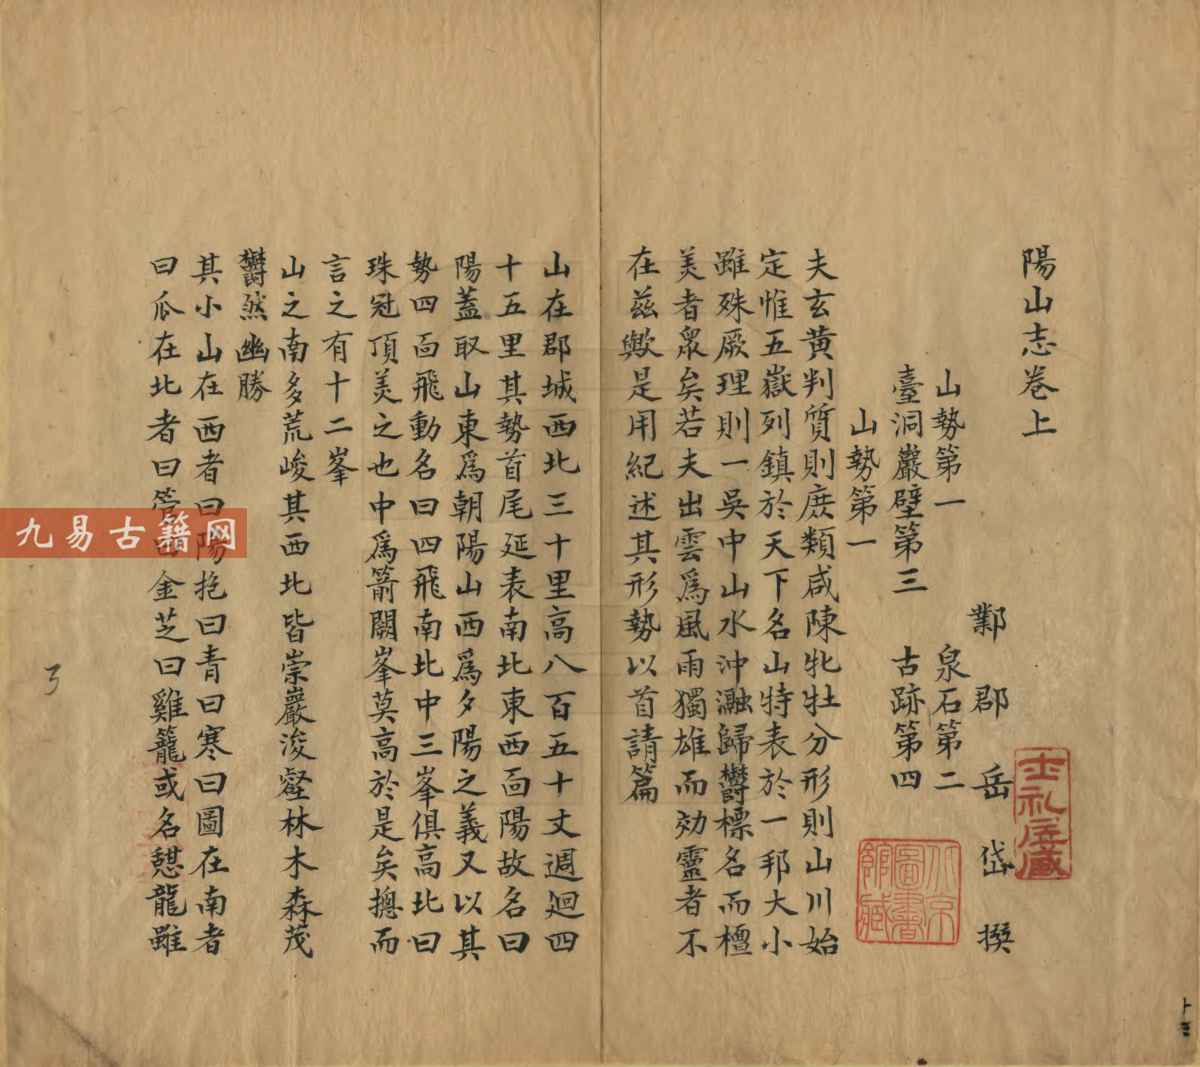 陽山志卷上
鄴郡岳岱撰
山勢第一 泉石第二
臺洞巖壁第三 古跡第四
山勢第一
夫玄黃判質則庶類咸陳牝牡分形則山川始
定惟五嶽列鎮於天下名山特表於一邦大小
雖殊厥理則一吳中山水沖瀜歸欝標名而檀
美者衆矣若夫出雲爲風雨獨雄而効靈者不
在茲歟是用紀述其形勢以首請篇
山在郡城西北三十里高八百五十丈週迴四
十五里其勢首尾延袤南北東西靣陽故名曰
陽蓋取山東爲朝陽山西爲夕陽之義又以其
勢四靣飛動名曰四飛南北中三峯俱高北曰
珠冠頂美之也中爲箭闕峯莫高於是矣摠而
言之有十二峯
山之南多荒峻其西北皆崇巖浚壑林木森茂
欝然幽勝
其小山在西者曰陽抱曰青曰寒曰圖在南者
曰瓜在北者曰管曰金芝曰雞籠或名憇龍雖
士礼居藏
北京圖書館藏
九易古籍网